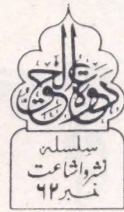 دعوۃ الحق
سلسلہ
نشر و اشاعت
نمبر ۶۲